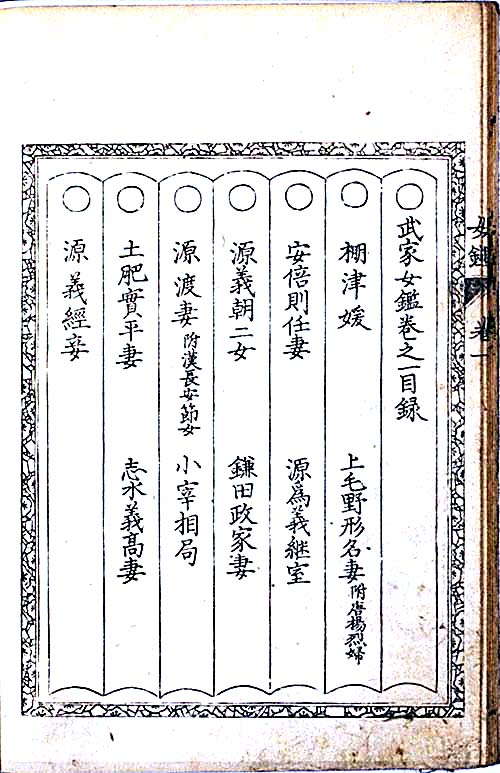 武家女鑑卷之一目録
棚津媛　上毛野形名妻附唐楊烈婦
安倍則任妻　源爲義継室
源義朝二女　鎌田政家妻
源渡妻附漢長安節女　小宰相局
土肥實平妻　志水義高妻
源義經妾
女鑑　卷一